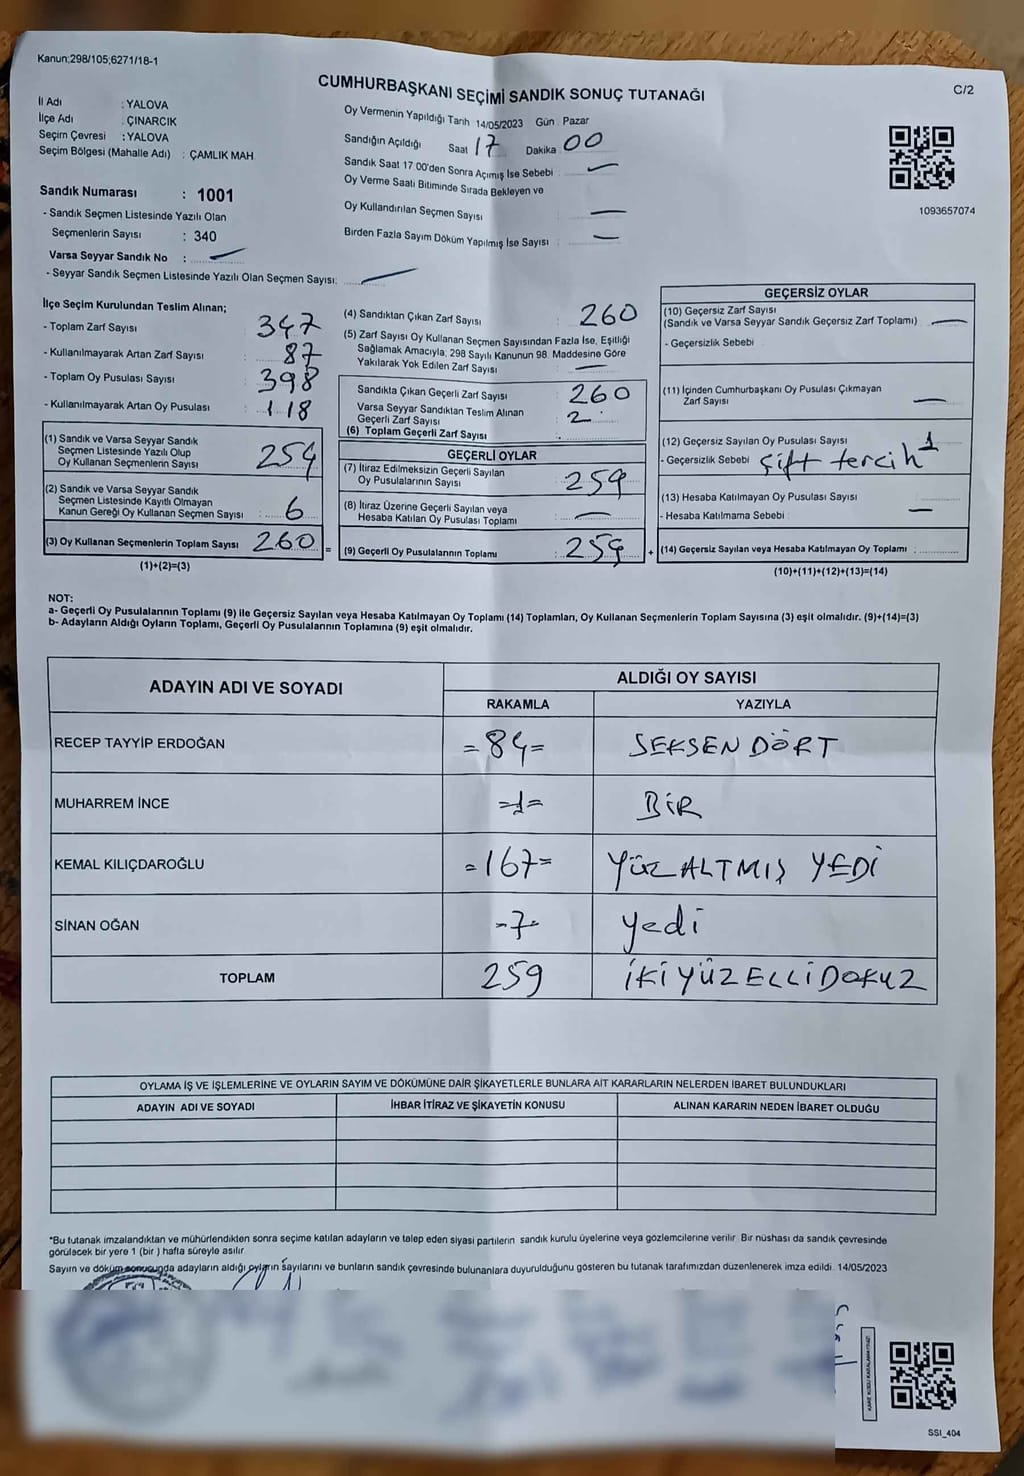 Kanun;298/105;6271/18-1
CUMHURBAŞKANI SEÇİMİ SANDIK SONUÇ TUTANAĞI
C/2
İl Adı : YALOVA
İlçe Adı : ÇINARCIK
Seçim Çevresi : YALOVA
Seçim Bölgesi (Mahalle Adı) : ÇAMLIK MAH.
Sandık Numarası : 1001
- Sandık Seçmen Listesinde Yazılı Olan
Seçmenlerin Sayısı : 340
Varsa Seyyar Sandık No :
- Seyyar Sandık Seçmen Listesinde Yazılı Olan Seçmen Sayısı:
Oy Vermenin Yapıldığı Tarih 14/05/2023 Gün : Pazar
Sandığın Açıldığı Saat 17 Dakika 00
Sandık Saat 17:00'den Sonra Açımış İse Sebebi :
Oy Verme Saati Bitiminde Sırada Bekleyen ve
Oy Kullandırılan Seçmen Sayısı
Birden Fazla Sayım Döküm Yapılmış İse Sayısı :
1093657074
İlçe Seçim Kurulundan Teslim Alınan;
- Toplam Zarf Sayısı : 347
- Kullanılmayarak Artan Zarf Sayısı : 87
- Toplam Oy Pusulası Sayısı : 398
- Kullanılmayarak Artan Oy Pusulası : 118
(1) Sandık ve Varsa Seyyar Sandık
Seçmen Listesinde Yazılı Olup
Oy Kullanan Seçmenlerin Sayısı : 254
(2) Sandık ve Varsa Seyyar Sandık
Seçmen Listesinde Kayıtlı Olmayan
Kanun Gereği Oy Kullanan Seçmen Sayısı : 6
(3) Oy Kullanan Seçmenlerin Toplam Sayısı : 260 =
(1)+(2)=(3)
(4) Sandıktan Çıkan Zarf Sayısı : 260
(5) Zarf Sayısı Oy Kullanan Seçmen Sayısından Fazla İse, Eşitliği
Sağlamak Amacıyla; 298 Sayılı Kanunun 98. Maddesine Göre
Yakılarak Yok Edilen Zarf Sayısı :
Sandıkta Çıkan Geçerli Zarf Sayısı : 260
Varsa Seyyar Sandıktan Teslim Alınan
Geçerli Zarf Sayısı :
(6) Toplam Geçerli Zarf Sayısı :
GEÇERLİ OYLAR
(7) İtiraz Edilmeksizin Geçerli Sayılan
Oy Pusulalarının Sayısı : 259
(8) İtiraz Üzerine Geçerli Sayılan veya
Hesaba Katılan Oy Pusulası Toplamı :
(9) Geçerli Oy Pusulalarının Toplamı : 259 +
GEÇERSİZ OYLAR
(10) Geçersiz Zarf Sayısı
(Sandık ve Varsa Seyyar Sandık Geçersiz Zarf Toplamı) :
- Geçersizlik Sebebi
(11) İçinden Cumhurbaşkanı Oy Pusulası Çıkmayan
Zarf Sayısı
(12) Geçersiz Sayılan Oy Pusulası Sayısı : 1
- Geçersizlik Sebebi : Çift tercih
(13) Hesaba Katılmayan Oy Pusulası Sayısı :
- Hesaba Katılmama Sebebi :
(14) Geçersiz Sayılan veya Hesaba Katılmayan Oy Toplamı :
(10)+(11)+(12)+(13)=(14)
NOT:
a- Geçerli Oy Pusulalarının Toplamı (9) ile Geçersiz Sayılan veya Hesaba Katılmayan Oy Toplamı (14) Toplamları, Oy Kullanan Seçmenlerin Toplam Sayısına (3) eşit olmalıdır. (9)+(14)=(3)
b- Adayların Aldığı Oyların Toplamı, Geçerli Oy Pusulalarının Toplamına (9) eşit olmalıdır.
ADAYIN ADI VE SOYADI
ALDIĞI OY SAYISI
RAKAMLA YAZIYLA
RECEP TAYYİP ERDOĞAN =84= SEKSEN DÖRT
MUHARREM İNCE =1= BİR
KEMAL KILIÇDAROĞLU =167= YÜZ ALTMIŞ YEDİ
SİNAN OĞAN -7- yedi
TOPLAM 259 İKİ YÜZ ELLİ DOKUZ
OYLAMA İŞ VE İŞLEMLERİNE VE OYLARIN SAYIM VE DÖKÜMÜNE DAİR ŞİKAYETLERLE BUNLARA AİT KARARLARIN NELERDEN İBARET BULUNDUKLARI
ADAYIN ADI VE SOYADI İHBAR İTİRAZ VE ŞİKAYETİN KONUSU ALINAN KARARIN NEDEN İBARET OLDUĞU
*Bu tutanak imzalandıktan ve mühürlendikten sonra seçime katılan adayların ve talep eden siyasi partilerin sandık kurulu üyelerine veya gözlemcilerine verilir. Bir nüshası da sandık çevresinde
görülecek bir yere 1 (bir) hafta süreyle asılır.
Sayım ve döküm sonucunda adayların aldığı oyların sayılarını ve bunların sandık çevresinde bulunanlara duyurulduğunu gösteren bu tutanak tarafımızdan düzenlenerek imza edildi. 14/05/2023
SSI_404